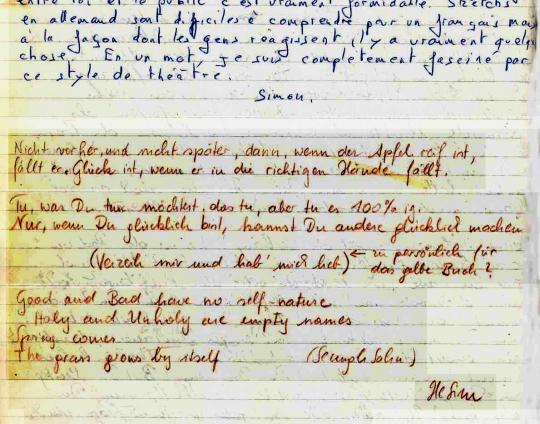 entre toi et le public c'est vraiment formidable. Sketchs
en allemand sont difficiles à comprendre pour un français mais
à la façon dont les gens réagissent, il y a vraiment quelque
chose. En un mot, je suis complètement fasciné par
ce style de théâtre.
Simon.
Nicht vorher, und nicht später, dann, wenn der Apfel reif ist,
fällt er. Glück ist, wenn er in die richtigen Hände fällt.
Tu, was Du tun möchtest, das tu, aber tu es 100%ig.
Nur, wenn Du glücklich bist, kannst Du andere glücklich machen
(Verzeih mir und hab' mich lieb) ← zu persönlich für
das gelbe Buch?
Good and Bad have no self-nature
Holy and Unholy are empty names
Spring comes
The grass grows by itself